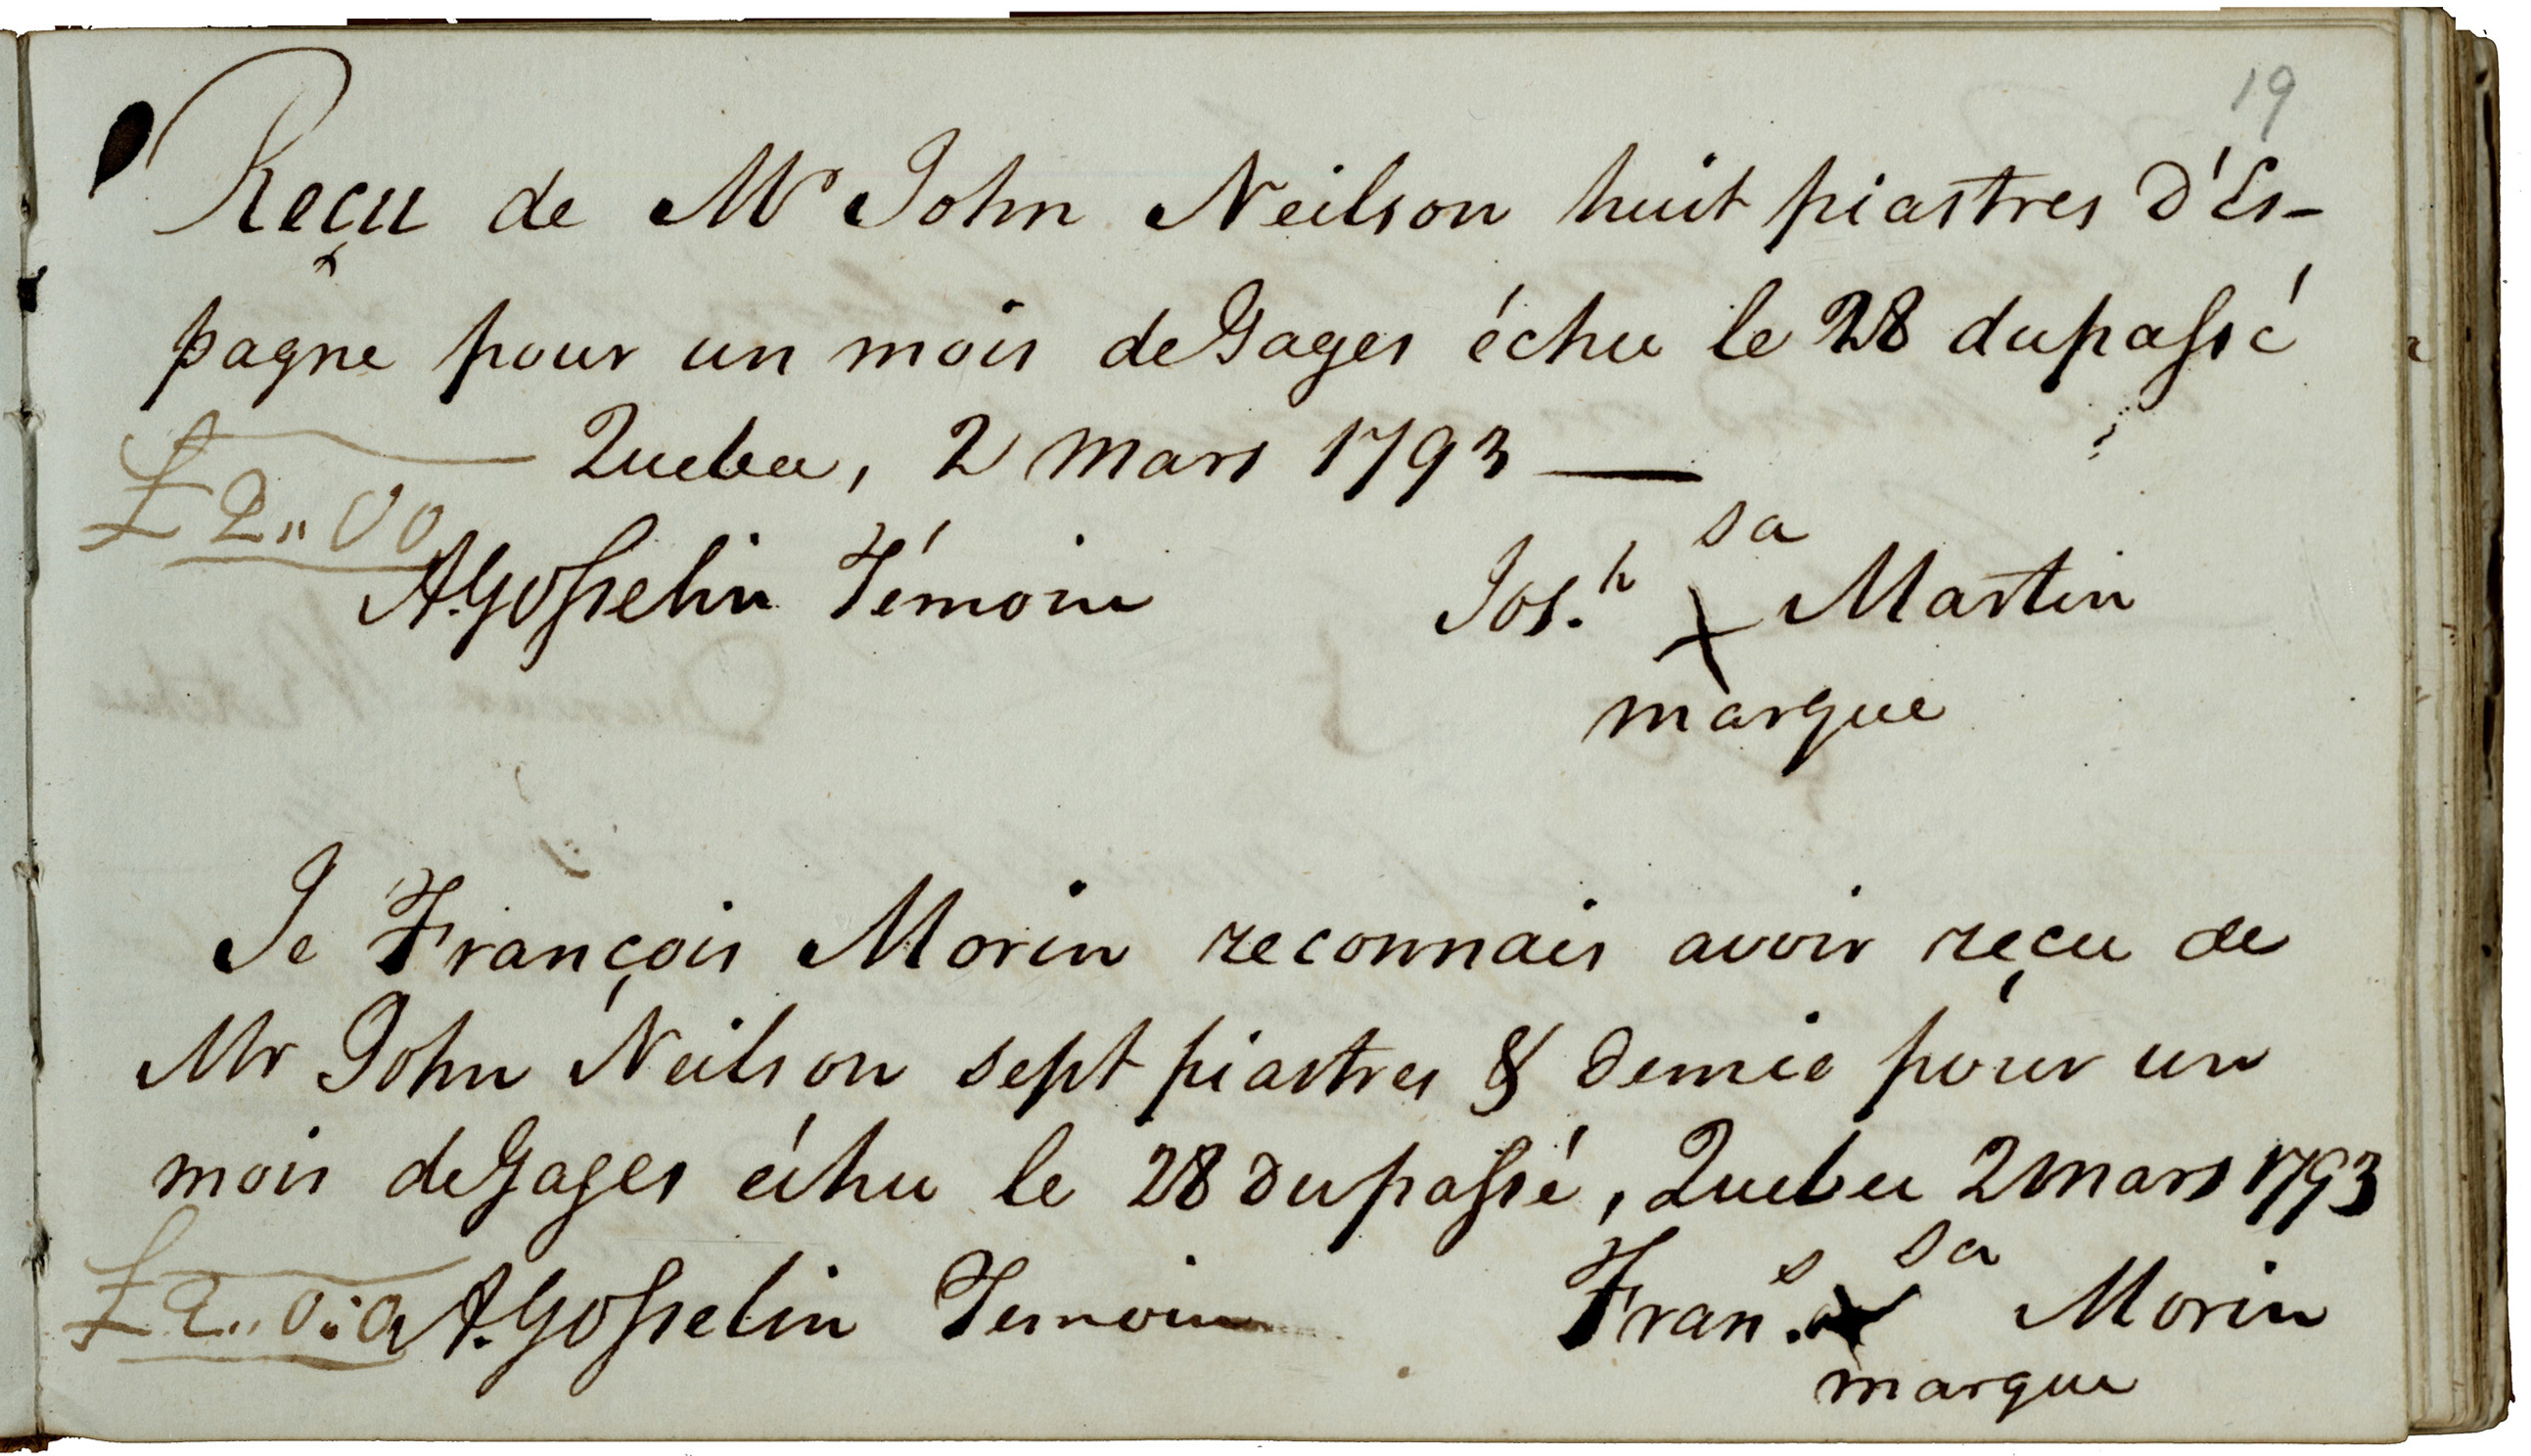 19
Reçu de Mr John Neilson huit piastres d'Es-
pagne pour un mois de Gages échu le 28 du passé
Quebec, 2 Mars 1793
£ 2 ,, 0 0
sa
A. Gosselin Témoin Jos.h X Martin
marque
Je François Morin reconnais avoir reçu de
Mr John Neilson sept piastres & demie pour un
mois de Gages échu le 28 du passé, Quebec 2 mars 1793
sa
£ 2 ,, 0 : 0 A. Gosselin Temoin Fran.s X Morin
marque